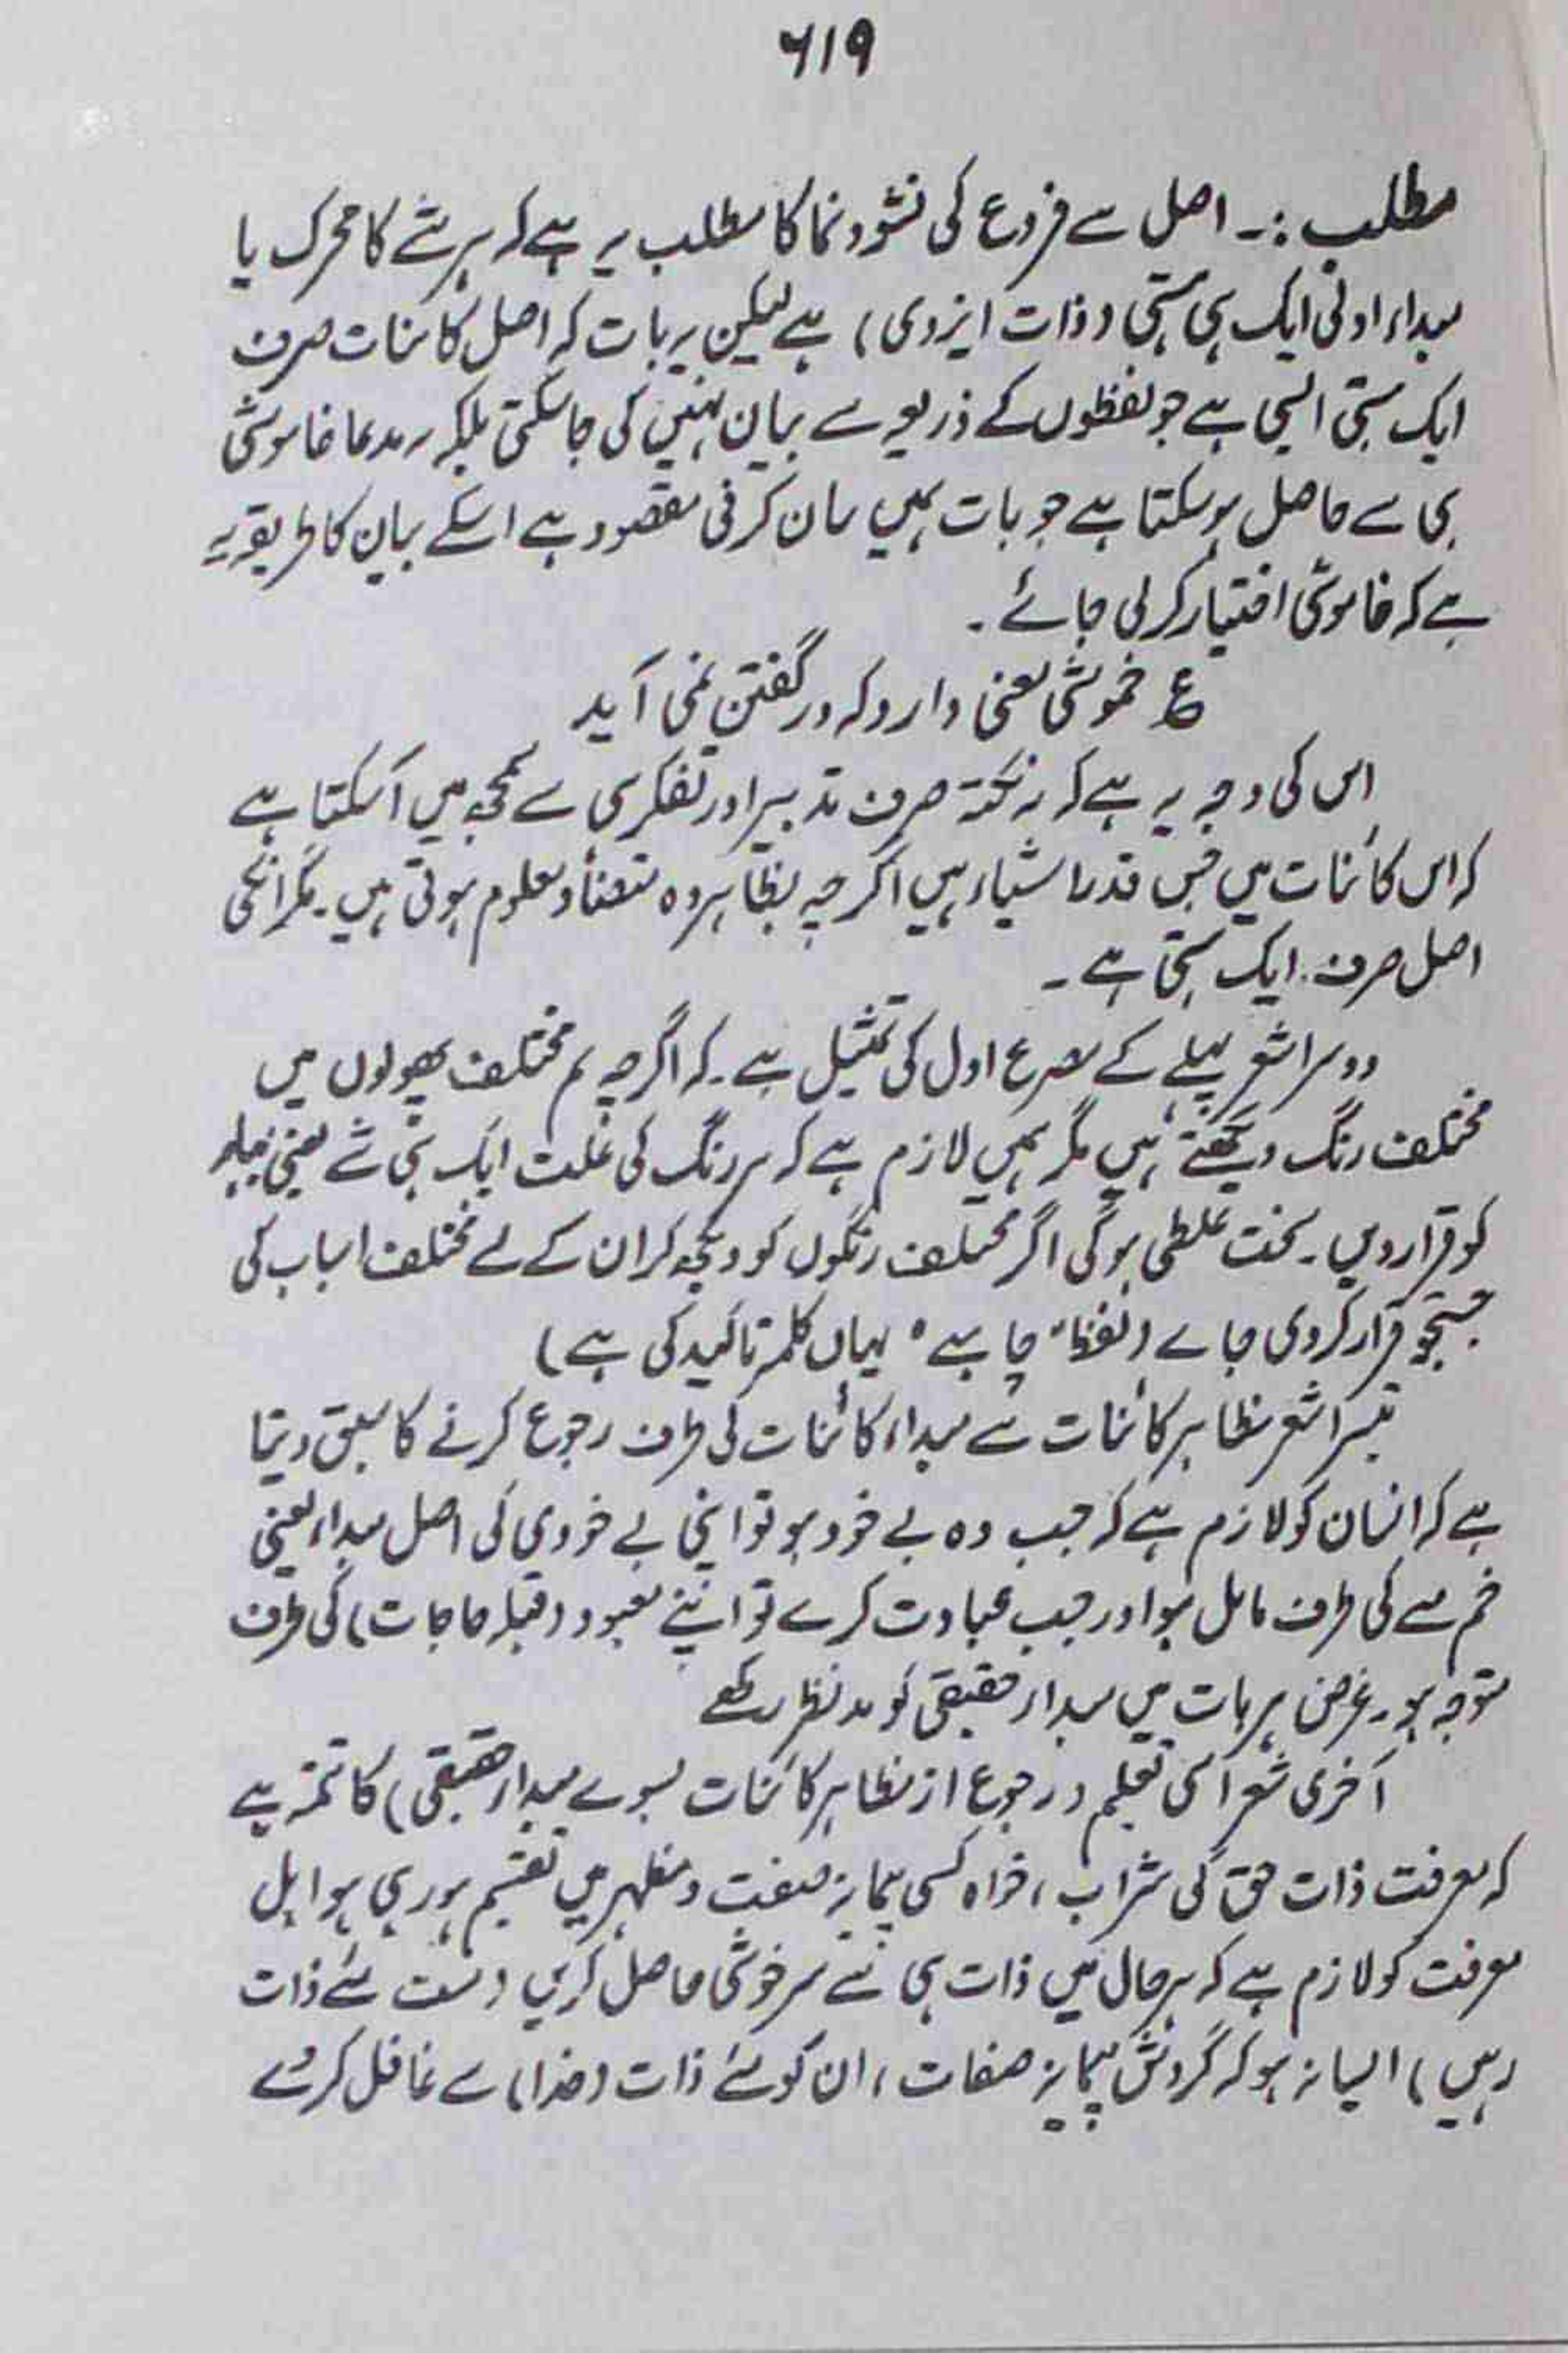 ۶۱۹
مطلب :۔ اصل سے فروع کی نشوونما کا مطلب یہ ہے کہ ہر شے کا محرک یا
مبداء اولیٰ ایک ہی ہستی (ذات ایزدی) ہے لیکن یہ بات کہ اصل کائنات صرف
ایک ہستی ایسی ہے جو لفظوں کے ذریعہ سے بیان نہیں کی جاسکتی بلکہ یہ مدعا خاموشی
ہی سے حاصل ہوسکتا ہے جو بات ہمیں بیان کرنی مقصود ہے اسکے بیان کا طریقہ یہ
ہے کہ خاموشی اختیار کرلی جائے ۔
ع خموشی معنی دارد کہ در گفتن نمی آید
اس کی وجہ یہ ہے کہ یہ نکتہ صرف تدبیر اور تفکر ہی سے سمجھ میں آسکتا ہے
کہ اس کائنات میں جس قدر اشیاء ہیں اگرچہ بظاہر وہ متضاد معلوم ہوتی ہیں ۔ مگر انکی
اصل صرف ایک ہستی ہے ۔
دوسرا شعر پہلے کے مصرع اول کی تمثیل ہے ۔ کہ اگرچہ ہم مختلف پھولوں میں
مختلف رنگ دیکھتے ہیں مگر ہمیں لازم ہے کہ ہر رنگ کی علت ایک ہی شے یعنی بہار
کو قرار دیں ۔ سخت غلطی ہوگی اگر مختلف رنگوں کو دیکھ کر ان کے لے مختلف اسباب کی
جستجو قرار کردی جاے (لفظ "چاہیے" یہاں کلمہ تائید کی ہے)
تیسرا شعر مظاہر کائنات سے مبداء کائنات کی طرف رجوع کرنے کا سبق دیتا
ہے کہ انسان کو لازم ہے کہ جب وہ بے خود ہو تو اپنی بے خودی کی اصل مبداء یعنی
خم مے کی طرف مائل ہو اور جب عبادت کرے تو اپنے معبود (قبلہ حاجات) کی طرف
متوجہ ہو ۔ غرض ہر بات میں مبداء حقیقی کو مدنظر رکھے
آخری شعر اسی تعلیم (رجوع از مظاہر کائنات بسوے مبداء حقیقی) کا تتمہ ہے
کہ معرفت ذات حق کی شراب ، خواہ کسی پیمانہ صفت و مظہر میں تقسیم ہورہی ہو اہل
معرفت کو لازم ہے کہ ہر حال میں ذات ہی سے سرخوشی حاصل کریں (مست مئے ذات
رہیں) ایسا نہ ہو کہ گردش پیمانہ صفات ، ان کو مئے ذات (خدا) سے غافل کردے